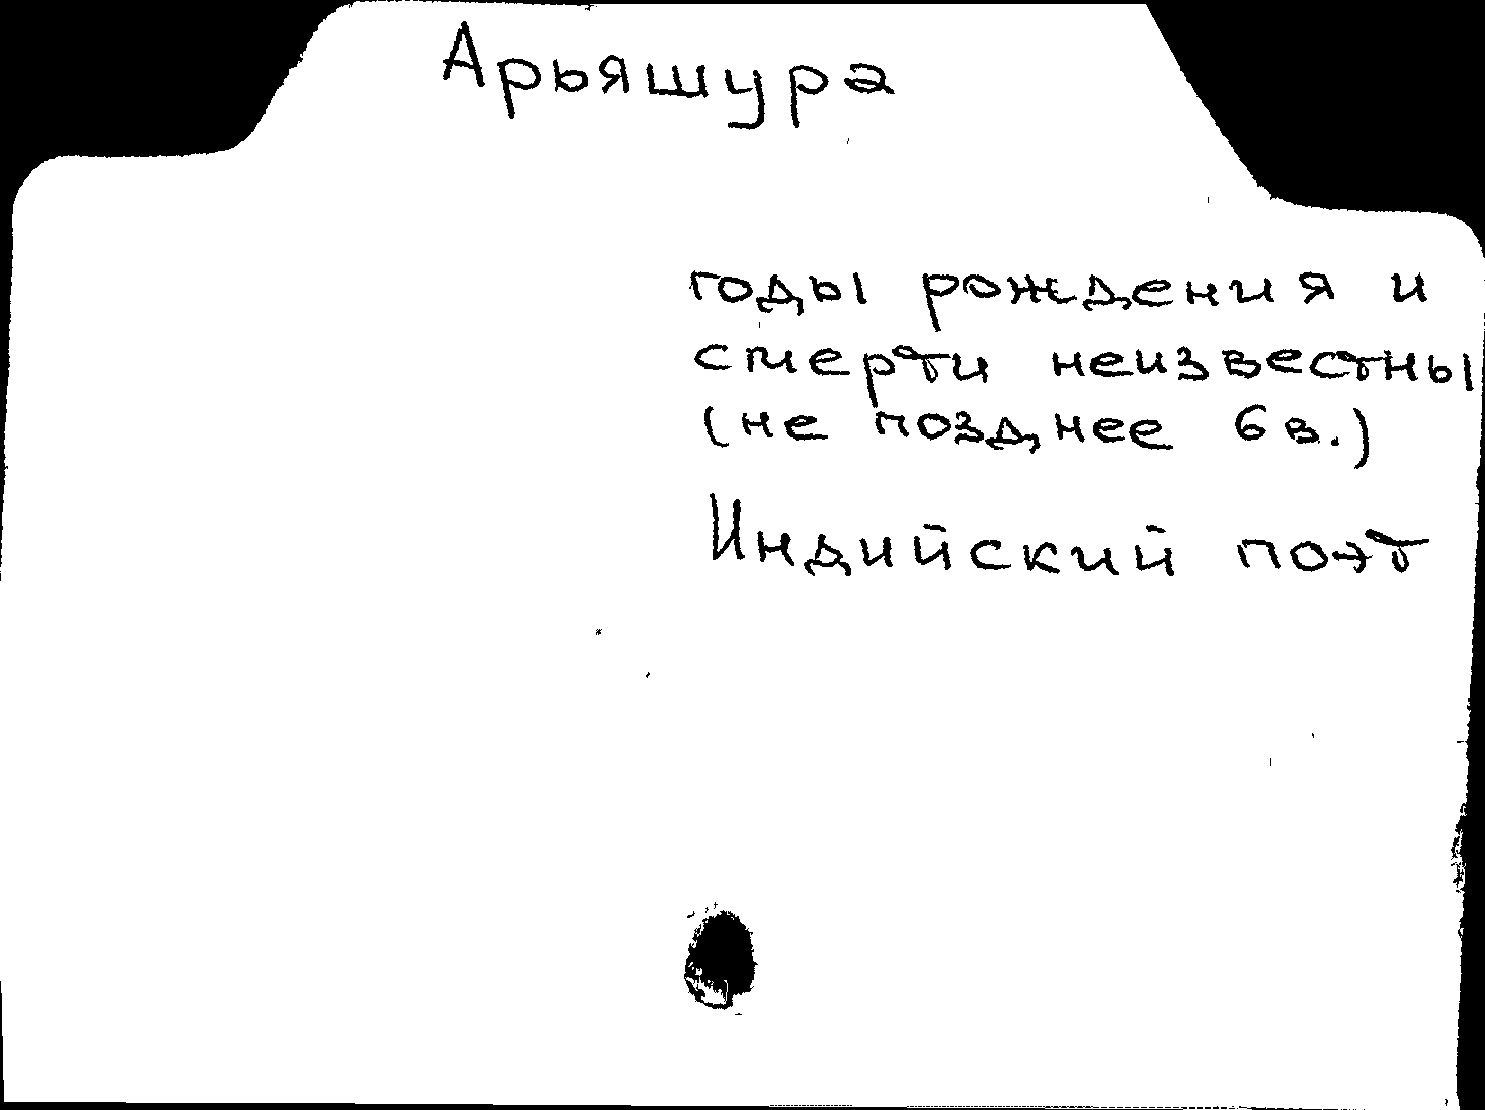 Арьяшура
годы рождения и
смерти неизвестны
(не позднее 6 в.)
Индийский поэт